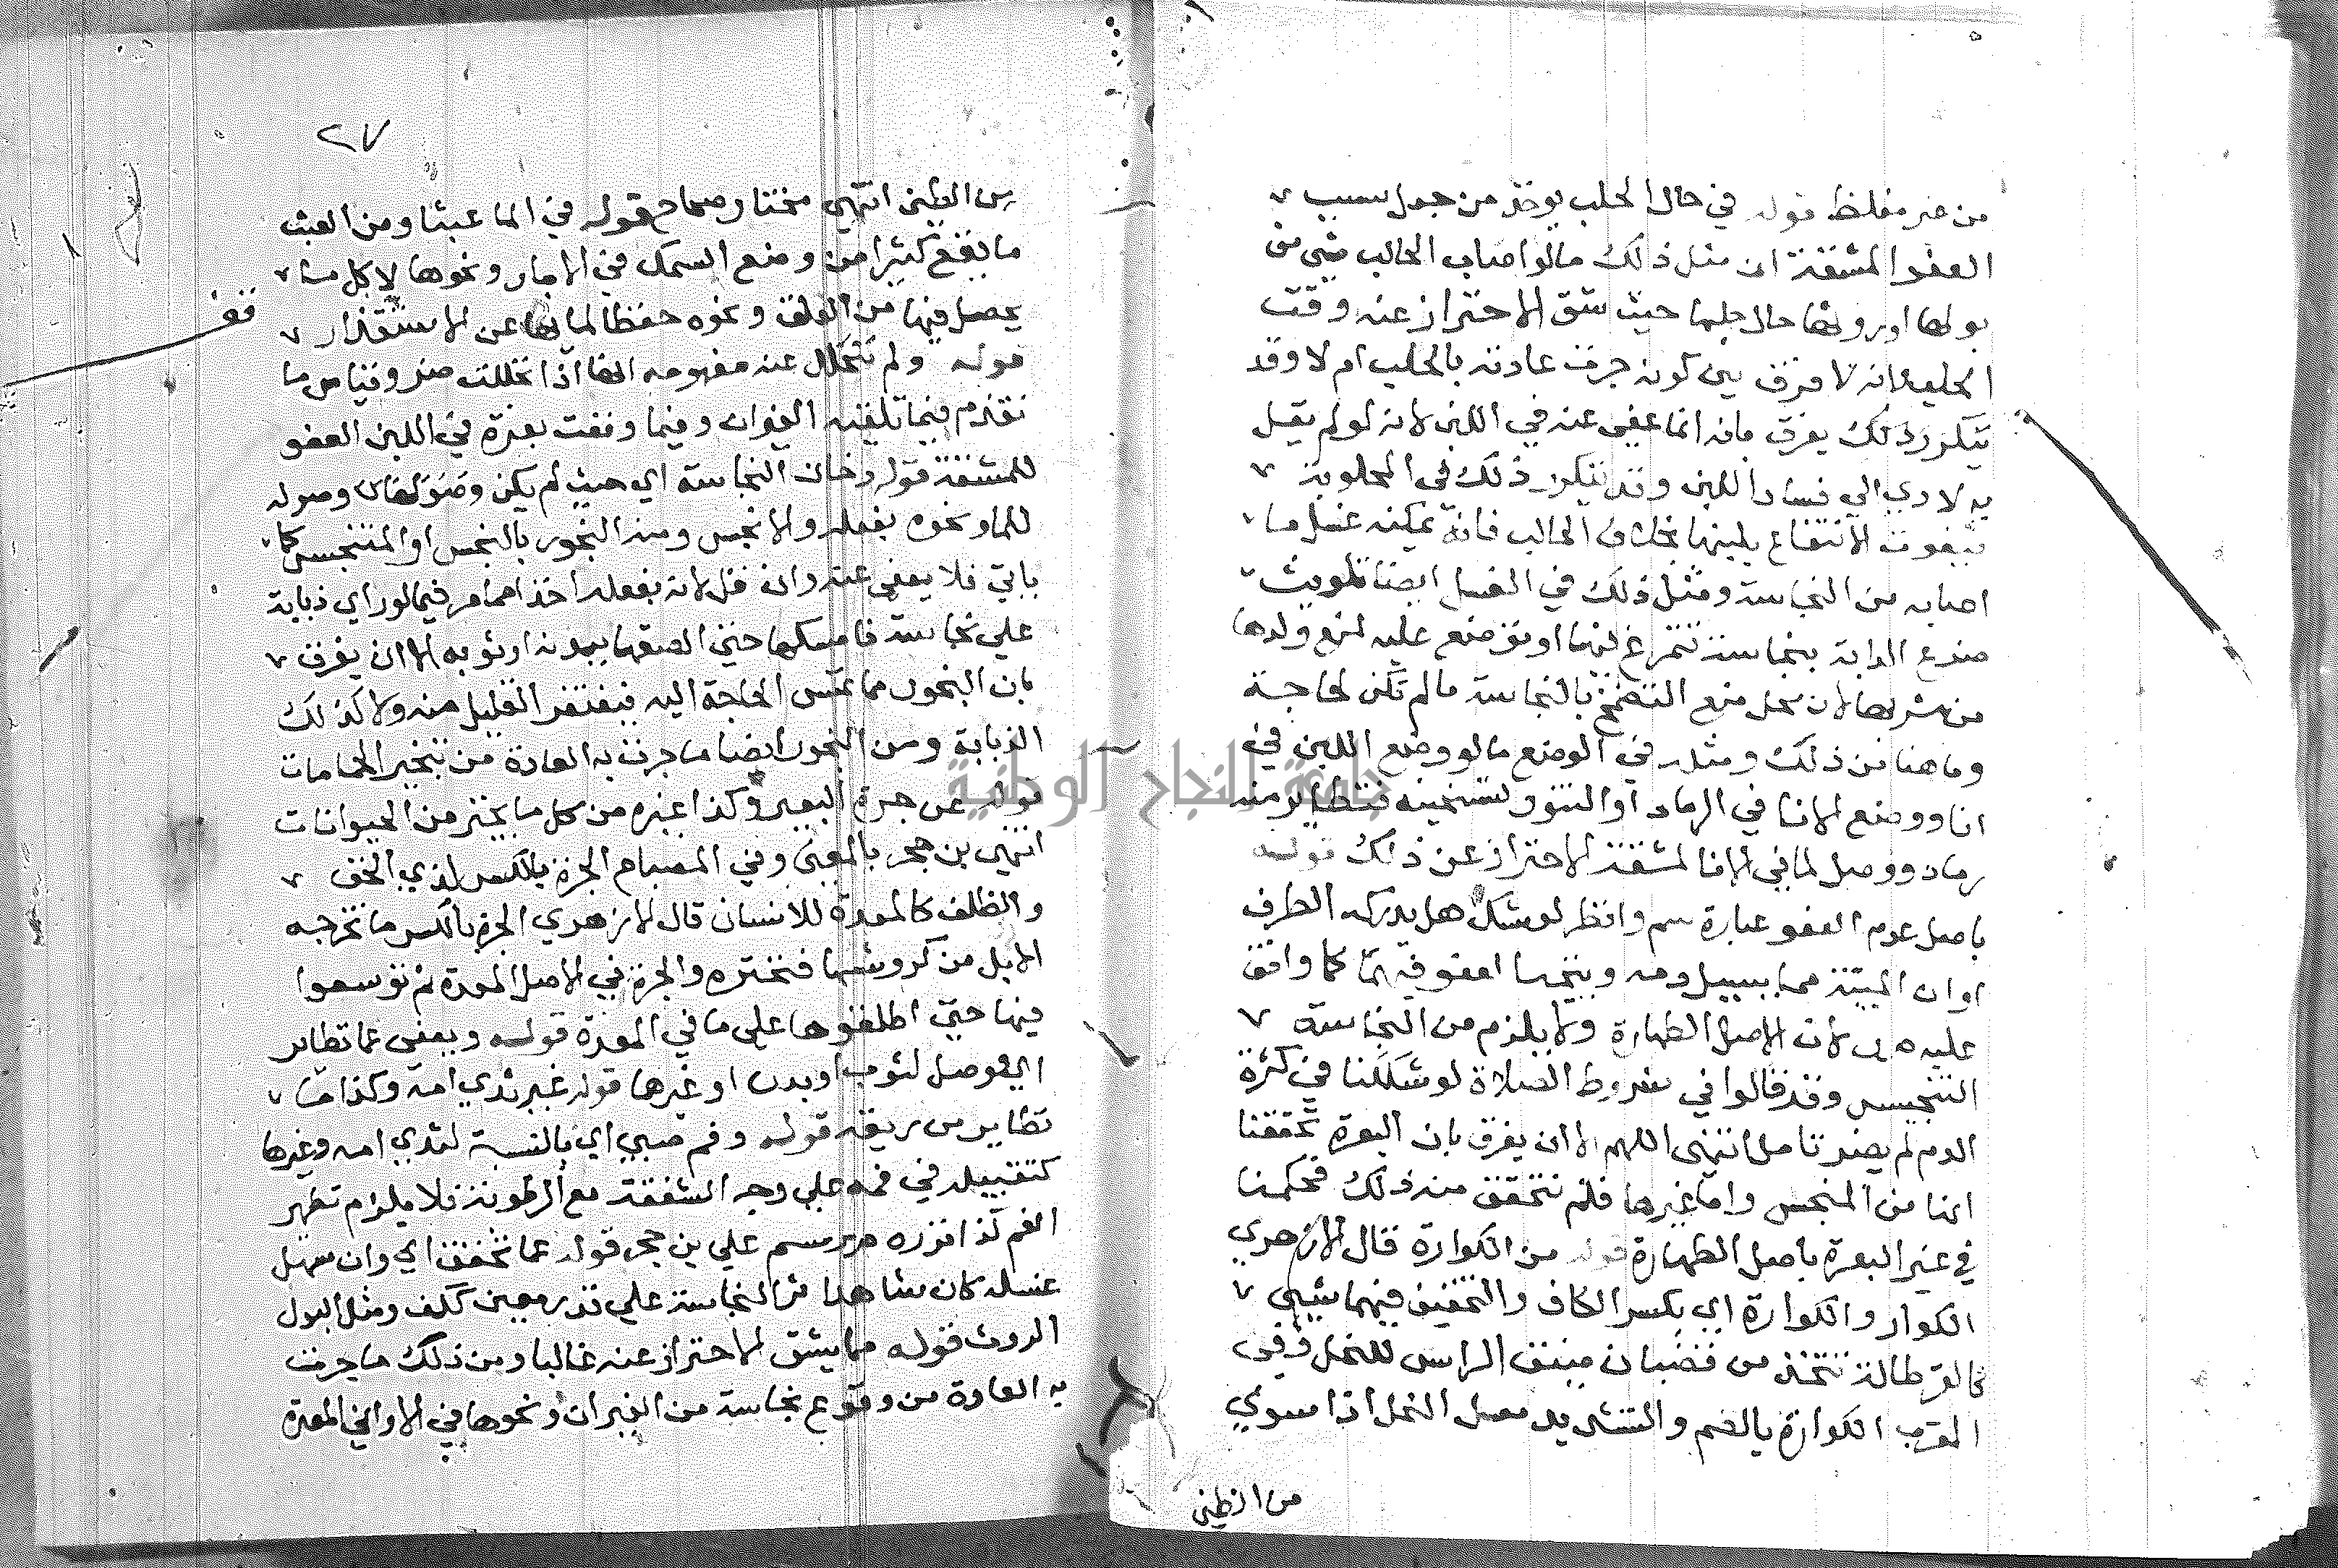 من غير مغلظ قوله في حال الحلب يوخذ من جعل سبب
العفو المشقة ان مثل ذلك مالو اصاب الحالب شي من
بولها او روثها حال حلبها حيث شق الاحتراز عنه وقت
الحلب لانه لا فرق بين كونه جرت عادته بالحلب ام لا وقد
يتكرر ذلك يفرق بانه انما عفي عنه في اللبن لانه لو لم يقل
به لادي الي فساد اللبن وقد يتكرر ذلك في المحلوبة
فيفوت الانتفاع بلبنها بخلاف الحالب فانه يمكنه غسل ما
اصابه من النجاسة ومثل ذلك في الغسل ايضا تلويث
ضرع الدابة بنجاسة تتمرغ فيها او توضع عليه لمنع ولدها
من شربها لان محل منع التضمخ بالنجاسة مالم تكن لحاجة
وما هنا من ذلك ومثله في الوضع مالو وضع اللبن في
انا ووضع الانا في الرماد او التنور لتسخينه فتطاير منه
رماد ووصل لما في الانا لمشقة الاحتراز عن ذلك قوله
باصل عدم العفو عبارة سم وانظر لو شك هل يدركه الطرف
او ان الميتة مما يسيل دمه وينجسا العفو فيهما كما وافق
عليه م ر لان الاصل الطهارة ولا يلزم من النجاسة
التنجيس وقد قالوا في شروط الصلاة لو شككنا في كثرة
الدم لم يضر تامل انتهى اللهم الا ان يفرق بان البعرة تحققنا
انها من المنجس واما غيرها فلم نتحقق منه ذلك فحكمنا
في غير البعرة باصل الطهارة قوله من الكوارة قال الازهري
الكوار والكوارة اي بكسر الكاف والتخفيف فيهما شيي
كالقرطالة تتخذ من قضبان ضيق الراس للنحل وفي
المغرب الكوارة بالضم والتشديد معسل النحل اذا سوي
من الطين
٢٧
من الطين انتهى مختار وصحاح قوله في الما عبثا ومن العبث
ما يقع كثيرا من وضع السمك في الابار ونحوها لاكل ما
يحصل فيها من العلق ونحوه حفظا لمائها عن الاستقذار
قوله ولم تتحلل عنه مفهومه انها اذا تحللت ضر وقياس ما
تقدم فيما تلقيه الفيران وفيما وقعت بعرة في اللبن العفو
للمشقة قوله دخان النجاسة اي حيث لم يكن وصوله وصوله
للما ونحوه بفعله والا نجس ومنه البخور بالنجس او المتنجس كما
ياتي فلا يعفى عنه وان قل لانه بفعله اخذا مما مر فيما لو راي ذبابة
علي نجاسة فامسكها حتي الصقها ببدنه او ثوبه الا ان يفرق
بان البخور مما تمس الحاجة اليه فيغتفر القليل منه ولا كذلك
الذبابة ومن البخور ايضا ما جرت به العادة من تبخير الحمامات
قوله عن جرة البعير وكذا غيره من كل ما يجتر من الحيوانات
انتهي بن حجر بالمعنى وفي المصباح الجرة بالكسر لذي الخف
والظلف كالمعدة للانسان قال الازهري الجرة بالكسر ما تخرجه
الابل من كروشها فتجتره والجرة في الاصل المعدة ثم توسعوا
فيها حتى اطلقوها علي ما في المعدة قوله ويعفى عما تطاير
اي فوصل لثوب او بدن او غيرها قوله غير ثدي امه وكذا ما
تطاير من ريقه قوله وفم صبي اي بالنسبة لثدي امه وغيرها
كتقبيله في فمه علي وجه الشفقة مع الرطوبة فلا يلزم تطهير
الفم كذا قرره م ر سم علي بن حجر قوله عما تحقق اي وان سهل
غسله كان شاهد اثر النجاسة علي قدر معين ككف ومثل البول
الروث قوله مما يشق الاحتراز عنه غالبا ومن ذلك ما جرت
به العادة من وقوع نجاسة من الفيران ونحوها في الاواني المعدة
قف
جامعة النجاح الوطنية